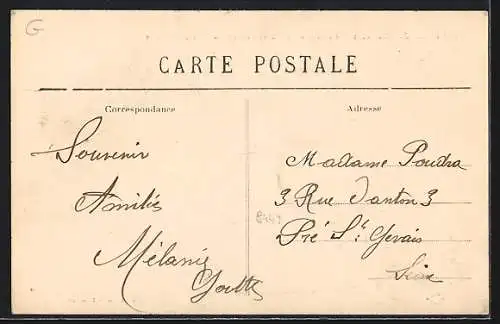 G
CARTE POSTALE
Correspondance
Adresse
Souvenir
Amitiés
Mélanie
Madame Poudra
3 Rue Danton 3
Pré St. Gervais
Seine